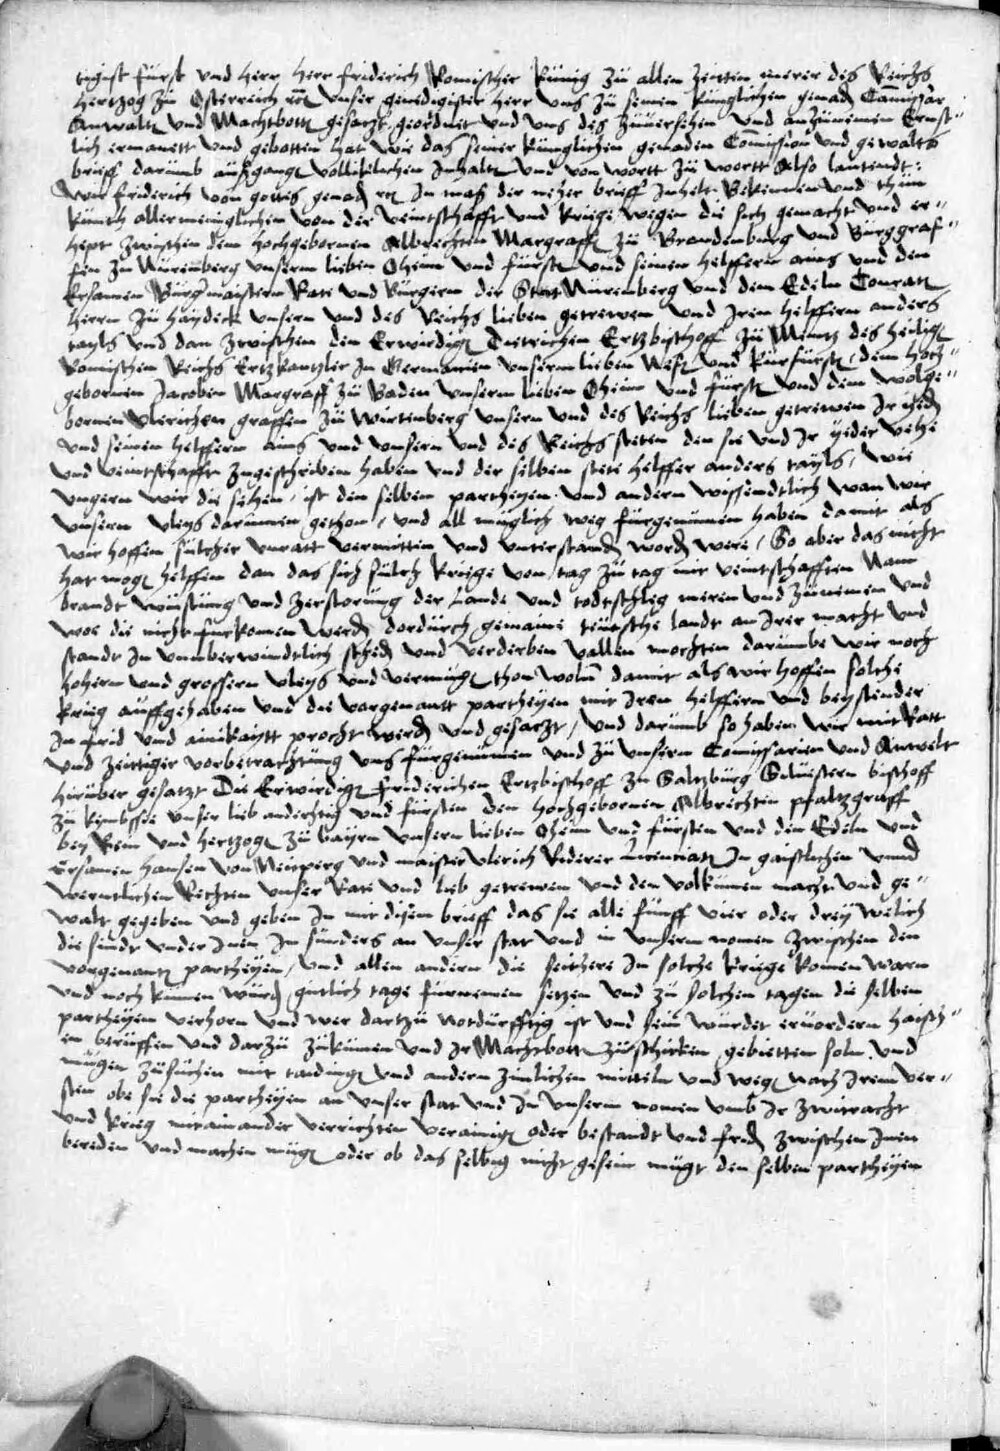 tigist fürst und Herr Herr Friderich Romischer Künig zu allen Zeitten merer des Reichs
Hertzog zu Osterreich etc unser genedigister Herr uns zu seinen künglichen genaden Comissari
Anwalt und Machtbott gesatzt geordnet und uns des zuversehen und anzunemen Ernst-
lich ermanett und gebotten hat wie das seiner künglichen genaden Comission und gewalts
brieff darumb außgangen volliklichen Inhalten und von wortt zu wortt Also lautendt:
Wir Friderich von gottes genaden etc In maß der neher brieff Inhelt. Bekennen und thun
kunth allermeniglichen von der veintschafft und kriege wegen die sich gemacht und er-
hept zwischen dem Hochgebornen Albrechten Margraff zu Brandenburg und Burggraf-
fen zu Nüremberg unserm lieben Oheim und fürsten und seinen helffern ains und den
Ersamen Burgmaistern Rate und Burgern der Stat Nüremberg und dem Edeln Conratt
Herrn zu Haydeck unsern und des Reichs lieben getrewen und Iren helffern anders
tayls und dan zwischen den Erwirdigen Dietrichen Ertzbischoff zu Mentz des heiligen
Romischen Reichs Ertzkantzler In Germanien unserm lieben Nefen und kurfürsten, dem Hoch-
gebornen Jacoben Margraff zu Baden unserm lieben Oheim und fürsten und dem wolge-
bornen Ulrichen graffen zu Wirtenberg unsern und des Reichs lieben getrewen Ir yeden
und seinen helffern ains und unsern und des Reichs steten den sie und Ir yeder vehe
und veintschafft zugeschriben haben und der selben stete helffer anders tayls, wie
ungern wir die sehen, ist den selben partheyen und andern wissendtlich wan wir
unsern vleys darinnen gethon, und all müglich weg fürgenumen haben damit als
wir hoffen sülcher unratt vermitten und unterstanden worden were, So aber das nicht
hat mogen helffen dan das sich sülch kriege von tag zu tag mit veintschafften Nam
brandt wüstüng und zerstorung der Lande und todtschleg meren und zunemen und
woe die nicht furkomen werden dordurch gemaine teutsche landt an Irer macht und
standt In unuberwindtlich scheden und verderben vallen mochten darumbe wir noch
hohern und grossern vleys und vermügen thon wolln damit als wir hoffen solche
krieg auffgehaben und die vorgenantt partheyen mit Iren helffern und beystender
In frid und ainikaytt procht werden und gesatzt, und darumb so haben wir mit Ratt
und zeittiger vorbetrachtung uns fürgenumen und zu unsern Comissarien und Anwelt
hirüber gesatzt Die Erwirdigen Friderichen Ertzbischoff zu Saltzburg Silvestern bischoff
zu Kembsse unser lieb andechtig und fürsten den Hochgebornen Albrechten pfaltzgraff
bey Rein und Hertzogen zu bayrn unsern lieben Oheim und fürsten und den Edeln und
Ersamen Hansen von Neitperg und maister Ulrich Riderer licenciaten In gaistlichen unnd
werntlichen Rechten unser Rate und lieb getrewen und den volkumen macht und ge-
walt gegeben und geben In mit disem brieff das sie alle fünff vier oder drey welich
die sindt under Inen In sunders an unser stat und in unserm nomen zwischen den
vorgenanten partheyen, und allen andern die seithere In solche kriege komen warn
und noch kumen würden, gütlich tage fürnemen setzen und zu solchen tagen die selben
partheyen verhorn und wer dartzu notdurfftig ist und sein würdet ervordern haisch-
en berüffen und darzu zukumen und Ir Machtbotten zuschicken gebietten soln. und
mügen zusuchen mit taidung und andern zimlichen mitteln und wegen nach Irem ver-
sten obe sie die partheyen an unser stat und In unserm nomen umb Ir zwitracht
und krieg mitainander verrichten verainigen oder bestandt und friden zwischen Inen
bereden und machen mügen oder ob das selbig nicht gesein mügt den selben partheyen